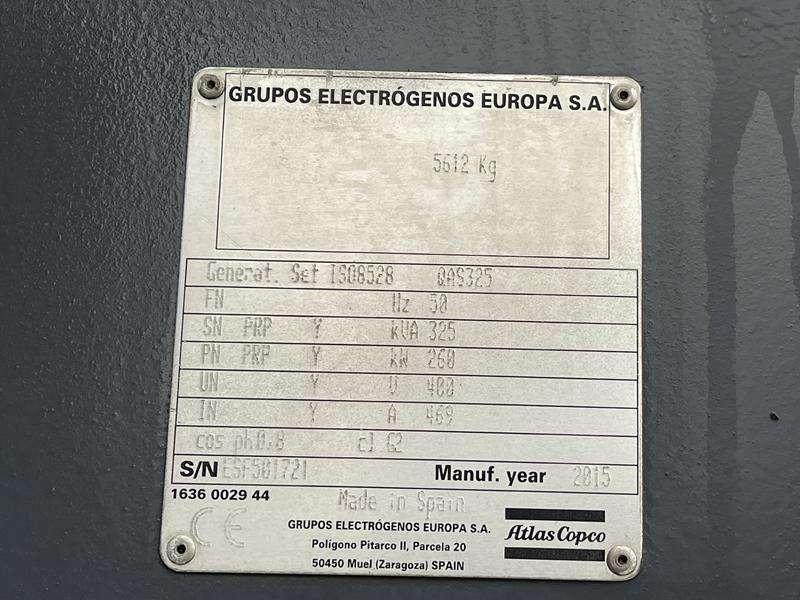 GRUPOS ELECTRÓGENOS EUROPA S.A.
5612 Kg
Generat. Set ISO8528 QAS325
FN Hz 50
SN PRP Y kVA 325
PN PRP Y kW 260
UN Y V 400
IN Y A 469
cos ph0,8 cl G2
S/N ESF501721 Manuf. year 2015
1636 0029 44 Made in Spain
CE
GRUPOS ELECTRÓGENOS EUROPA S.A.
Polígono Pitarco II, Parcela 20
50450 Muel (Zaragoza) SPAIN
Atlas Copco